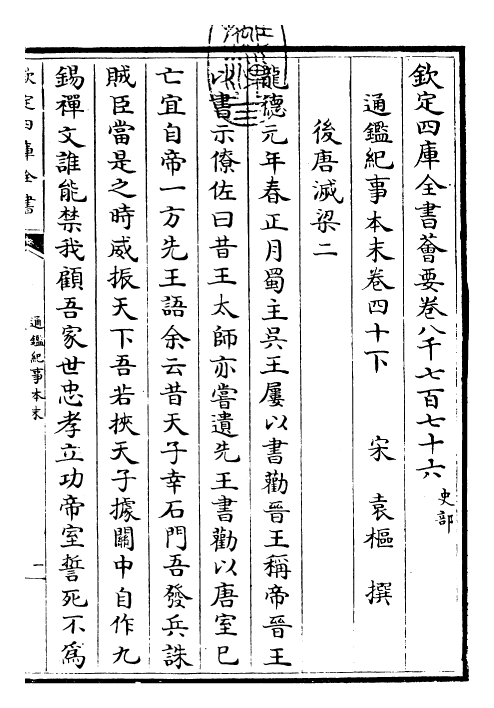 欽定四庫全書薈要卷八千七百七十六 史部
通鑑紀事本末卷四十下 宋 袁樞 撰
後唐滅梁二
龍德元年春正月蜀主吳王屢以書勸晉王稱帝晉王
以書示僚佐曰昔王太師亦嘗遺先王書勸以唐室已
亡宜自帝一方先王語余云昔天子幸石門吾發兵誅
賊臣當是之時威振天下吾若挾天子據關中自作九
錫禪文誰能禁我顧吾家世忠孝立功帝室誓死不為
欽定四庫全書
通鑑紀事本末